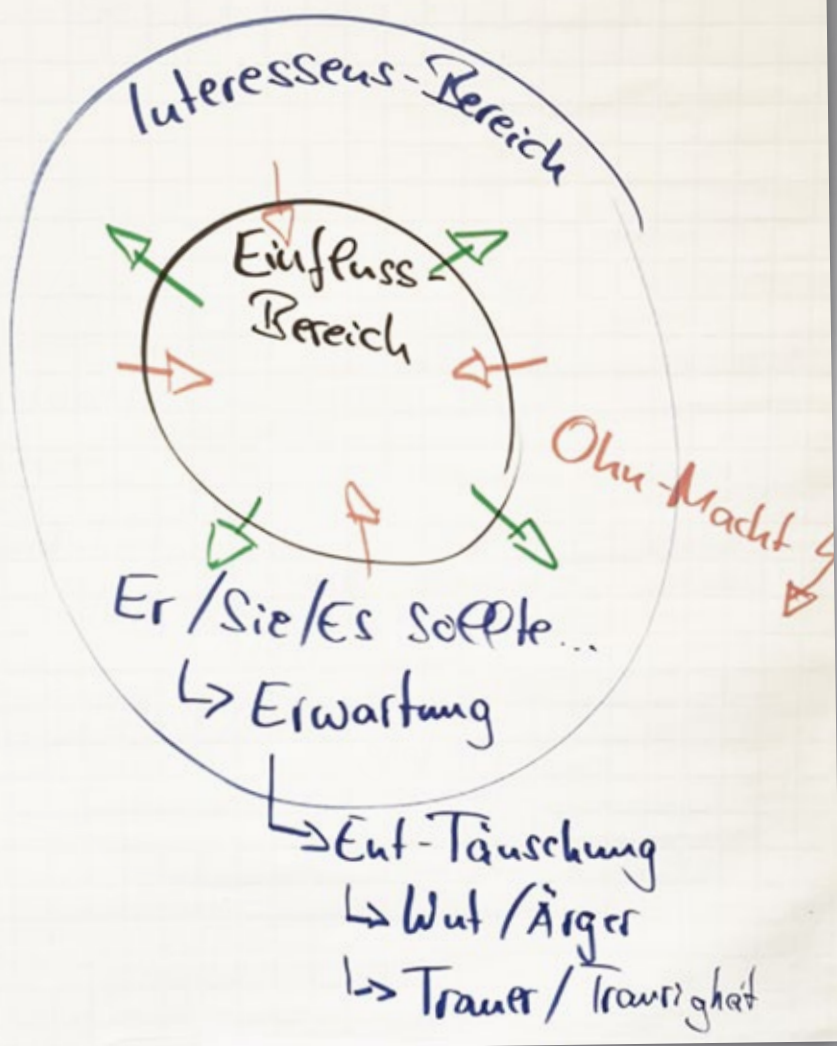 Interessens-Bereich
Einfluss-
Bereich
Ohn-Macht
Er/Sie/Es sollte...
↳ Erwartung
↳ Ent-Täuschung
↳ Wut/Ärger
↳ Trauer/Traurigkeit